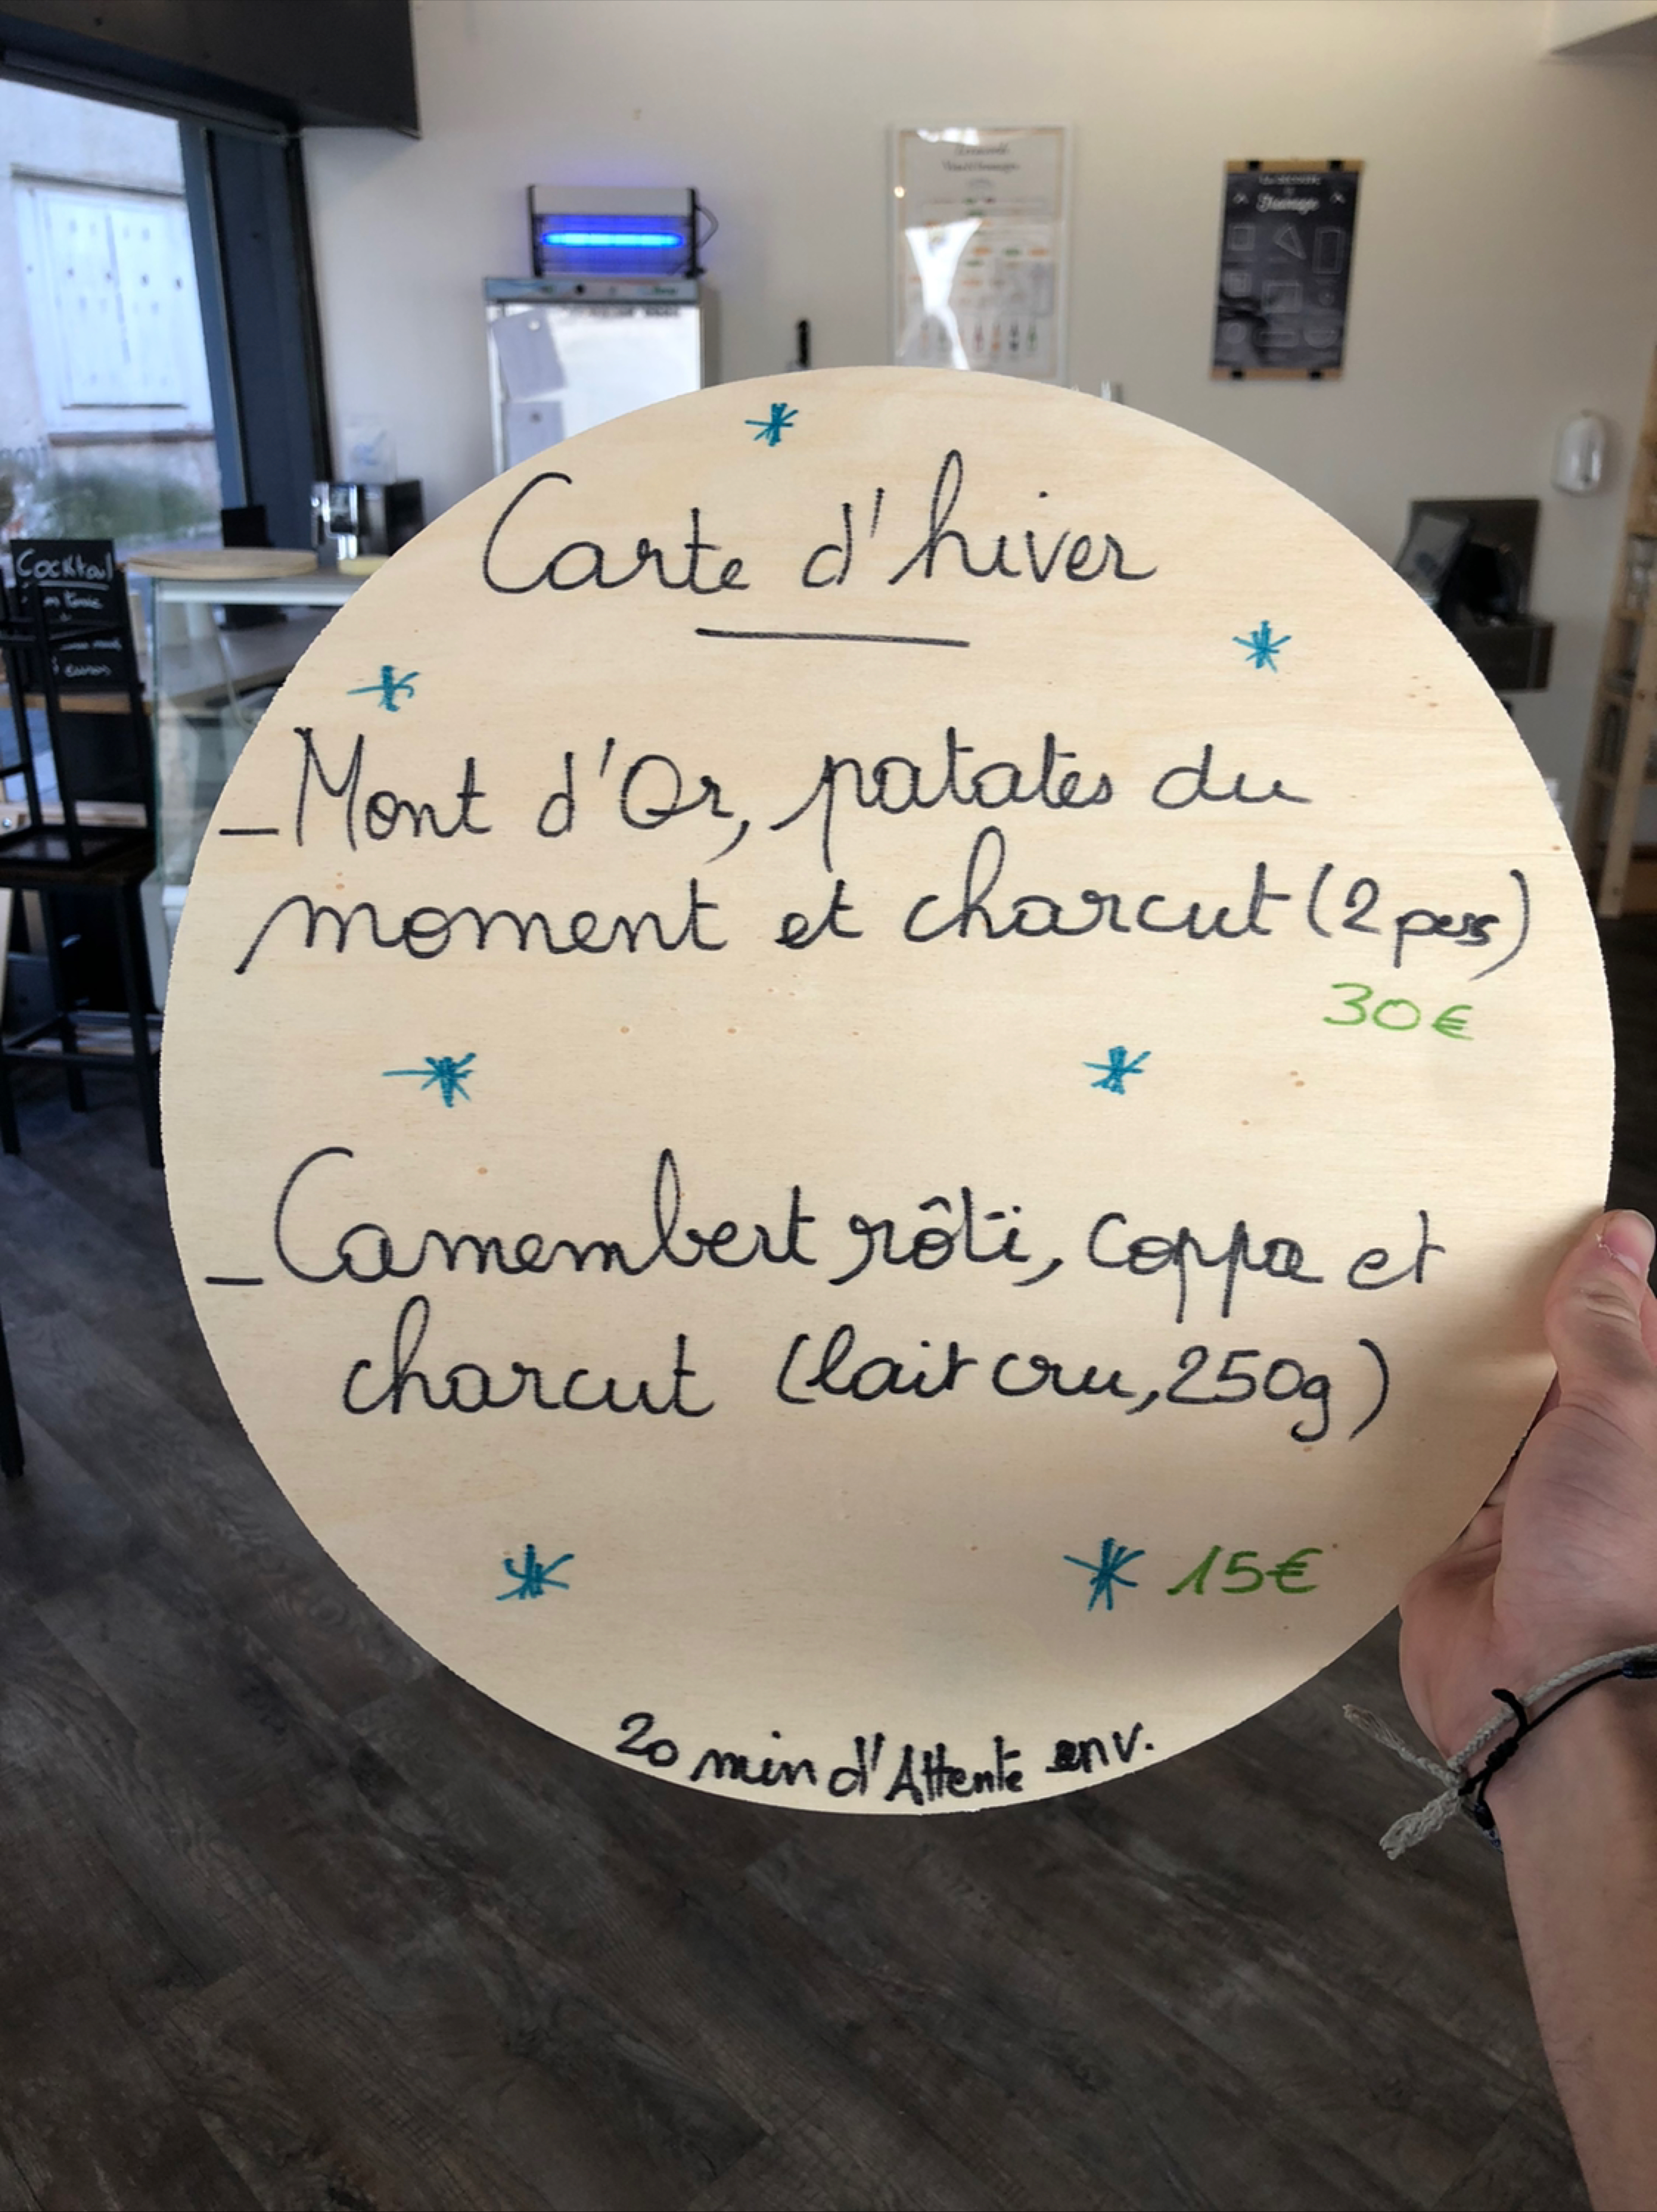 Carte d'hiver
_Mont d'Or, patates du
moment et charcut (2 pers)
30€
_Camembert rôti, coppa et
charcut (lait cru, 250g)
15€
20 min d'Attente env.
Cocktail